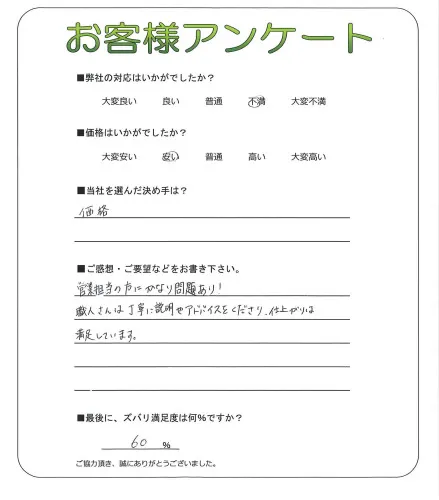 お客様アンケート
■弊社の対応はいかがでしたか？
大変良い 良い 普通 不満 大変不満
■価格はいかがでしたか？
大変安い 安い 普通 高い 大変高い
■当社を選んだ決め手は？
価格
■ご感想・ご要望などをお書き下さい。
営業担当の方にかなり問題あり！
職人さんは丁寧に説明やアドバイスをくださり、仕上がりは
満足しています。
■最後に、ズバリ満足度は何%ですか？
60 %
ご協力頂き、誠にありがとうございました。